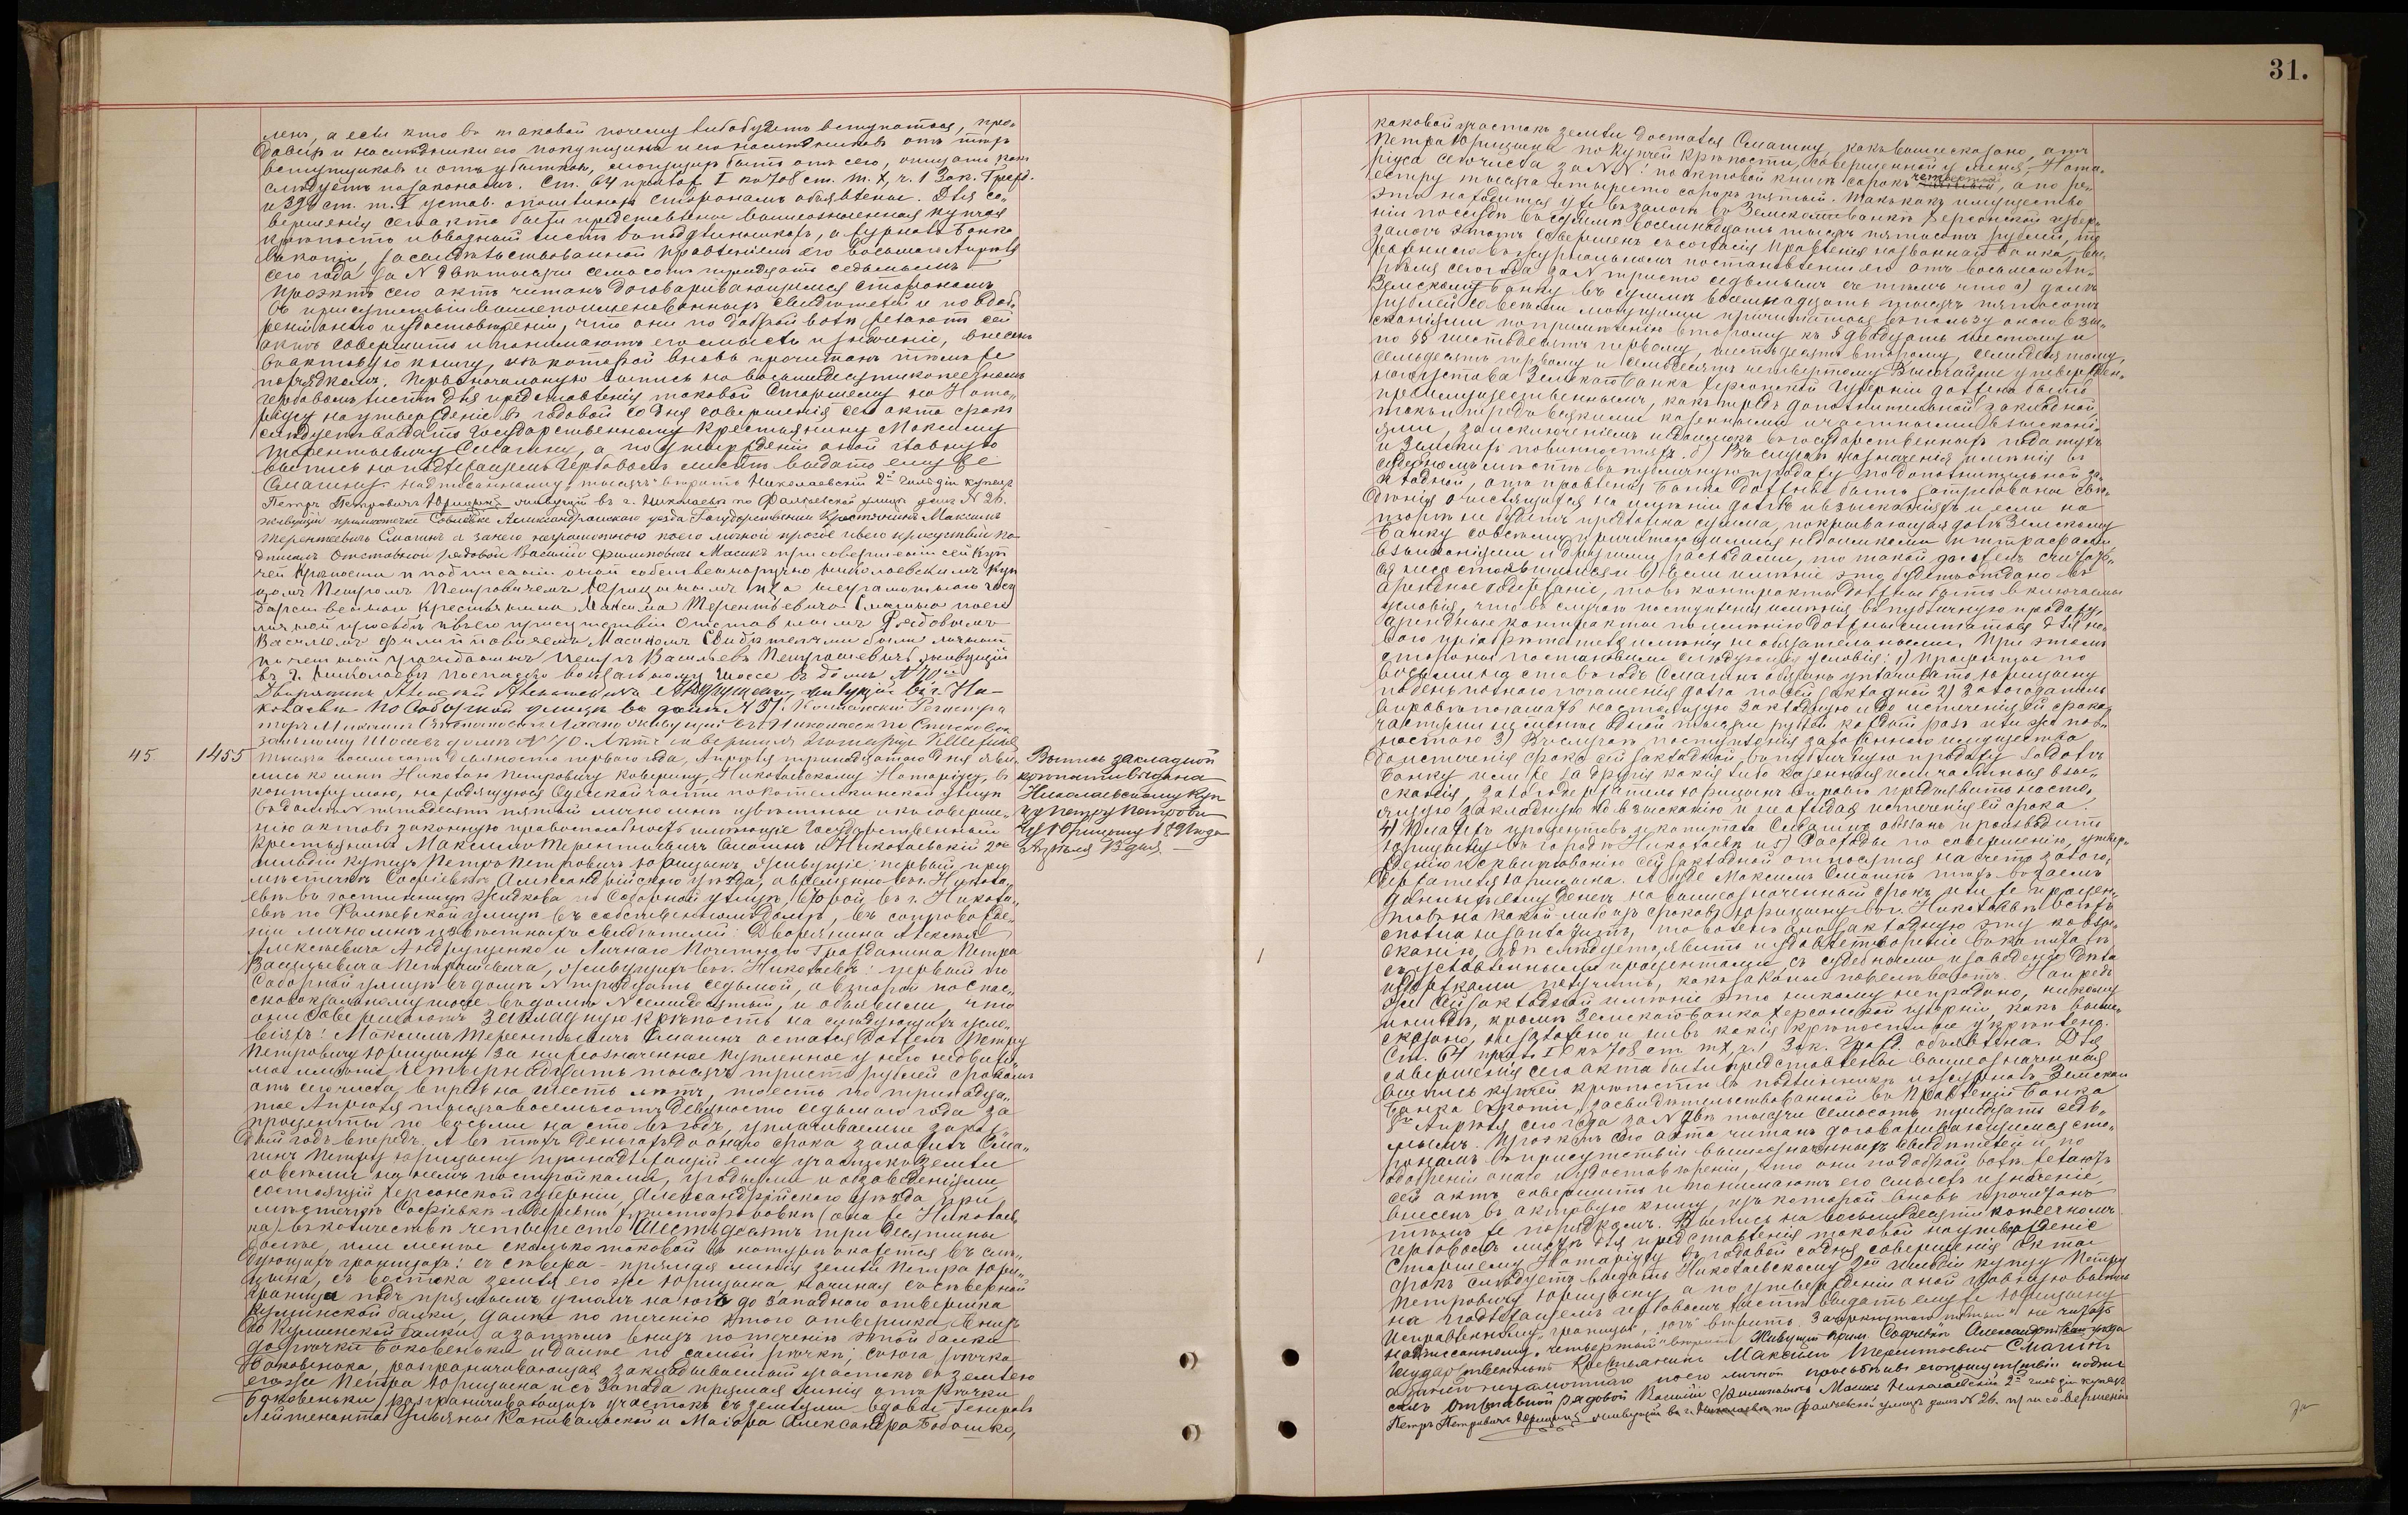 31.
лемъ, а если кто въ таковой почему либо будетъ вступаться, про-
давцу и наслѣдники его покупщика и его наслѣдниковъ отъ тѣхъ
вступщиковъ и отъ убытковъ, могущихъ быть отъ сего, очищать какъ
слѣдуетъ по законамъ. Ст. 64 прилож. I къ 708 ст. т. X, ч. 1 Зак. Гражд.
и ст. т. V устав. о пошлинахъ сторонамъ объявлены. Для со-
вершенія сего акта были представлены вышеозначенная купчая
крѣпость и вводный листъ въ подлинникахъ, а журналъ Банка
въ копіи, засвидѣтельствованной Правленіемъ его восьмого Апрѣля
сего года за N двѣ тысячи семьсотъ тридцать седьмымъ
Проэктъ сего акта читанъ договаривающимся сторонамъ
въ присутствіи вышепоименованныхъ свидѣтелей и по одоб-
реніи онаго и удостовѣреніи, что они по доброй волѣ желаютъ сей
актъ совершить и понимаютъ его смыслъ и значеніе, внесенъ
въ актовую книгу, изъ которой вновь прочитанъ тѣмъ же
порядкомъ. Первоначальную выпись на восьмидесятикопеечномъ
гербовомъ листѣ для представленія таковой Старшему Нота-
ріусу на утвержденіе въ годовой со дня совершенія сего акта срокъ
слѣдуетъ выдать Государственному Крестьянину Максиму
Терентьевичу Смагину, а по утвержденіи оной главную
выпись на подлежащемъ гербовомъ листѣ выдать ему же
Смагину. Надписанному „тысячъ“ вѣрить Николаевскій 2й гильдіи купецъ
Петръ Петровичъ Юрицынъ живущій въ г. Николаевѣ по Фалѣевской улицѣ домъ N 26.
живущій при мѣстечкѣ Софіевкѣ Александрійскаго уезда Государственный Крестьянинъ Максимъ
Терентьевичъ Смагинъ а за него неграмотного по его личной просьбѣ и въ его присутствіи ро-
дписалъ Отставной рядовой Василій Филиповичъ Масикъ при совершеніи сей куп-
чей крѣпости и подписаніи оной собственноручно николаевскимъ куп
цомъ Петромъ Петровичемъ Юрицынымъ и за неграмотнаго госу
дарственнаго крестьянина Максима Терентьевича Смагина по его
личной просьбѣ и въ его присутствіи Отставнымъ Рядовымъ
Василіемъ Филипповичемъ Масикомъ Свидѣтелями были личный
почетный гражданинъ Петръ Васильевъ Петрашевичъ живущій
въ г. Николаевѣ по спаско вокзальному шоссе въ домѣ N 70
Дворянинъ Алексѣй Алексѣевичъ Андрущенко живущій въ г. Ни-
колаевѣ по Соборной улицѣ въ домѣ N 37. Коллежскій Регистра
торъ живущій въ г. Николаевѣ по Спасковок
зальному Шоссе домъ N 70. Актъ совершилъ Нотаріусъ
45. 1455 Тысяча восемьсотъ девяносто перваго года, Апрѣля тринадцатаго дня яви-
лись ко мнѣ Николаю Петровичу Коверину, Николаевскому Нотаріусу, въ
контору мою, находящуюся Одесской части по Потемкинской улицѣ
въ домѣ N пятьдесятъ пятый лично мнѣ извѣстные и къ соверше-
нію актовъ законную правоспособность имѣющіе Государственный
Крестьянинъ Максимъ Терентьевичъ Смагинъ и Николаевскій 2й
гильдіи купецъ Петръ Петровичъ Юрицынъ, живущіе: первый при
мѣстечкѣ Софіевкѣ, Александрійскаго уѣзда, а временно въ г. Никола-
евѣ въ гостинницѣ Жидкова по Соборной улицѣ, второй въ г. Никола-
евѣ по Фалѣевской улицѣ въ собственномъ домѣ, въ сопровожде-
ніи лично мнѣ извѣстныхъ свидѣтелей: Дворянина Алексѣя
Алексѣевича Андрущенко и Личнаго Почетнаго Гражданина Петра
Васильевича Петрашевича, живущихъ въ г. Николаевѣ: первый по
Соборной улицѣ въ домѣ N тридцать седьмой, а второй по Спас-
сковокзальному шоссе въ домѣ N семидесятый, и объявили, что
они совершаютъ закладную крѣпость на слѣдующихъ усло-
віяхъ: Максимъ Терентьевичъ Смагинъ остался долженъ Петру
Петровичу Юрицыну за нижеозначенное купленное у него недвижи-
мое имѣніе четырнадцать тысячъ триста рублей срокомъ
отъ сего числа впредь на шесть лѣтъ, то есть по тринадца-
тое Апрѣля тысяча восемьсотъ девяносто седьмаго года за
проценты по восьми на сто въ годъ, уплачиваемые за каж-
дый годъ впередъ. А въ тѣхъ деньгахъ до онаго срока заложилъ Сма-
гинъ Петру Юрицыну принадлежащій ему участокъ земли
со всѣми на немъ постройками, угодьями и обзаведеніями
состоящій Херсонской губерніи, Александрійскаго уѣзда, при
мѣстечкѣ Софіевкѣ и деревнѣ Христофоровкѣ (она же Николаев-
ка) въ количествѣ четыреста шестьдесятъ три десятины
болѣе, или менѣе сколько таковой въ натурѣ окажется въ слѣ-
дующихъ границахъ: съ сѣвера - прямая линія земли Петра Юри-
цына, съ востока земля его же Юрицына, начиная съ сѣверной
границы подъ прямымъ угломъ на югъ до западнаго отвершка
Кущинской балки, далѣе по теченію этого отвершка внизъ
до Кущинской балки, а затѣмъ внизъ по теченію этой балки
до рѣчки Боковеньки и далѣе по самой рѣчкѣ; съ юга рѣчка
Боковенька, разграничивающая закладываемый участокъ съ землею
его же Петра Юрицына и съ Запада прямая линія отъ рѣчки
Боковеньки, разграничивающая участокъ съ землями вдовы Генералъ
Лейтенанта Ульяны Канивальской и Маіора Александра Бодошко,
Выпись закладной
крѣпости выдана
Николаевскому Куп
цу Петру Петрови
чу Юрицыну 1891 года
Апрѣля 13 дня. —
каковой участокъ земли достался Смагину, какъ выше сказано, отъ
Петра Юрицына по купчей крѣпости, совершенной у меня, Нота-
ріуса сего числа за NN: по актовой книгѣ сорокъ четвертый, а по ре-
естру тысяча четыреста сорокъ пятый. Такъ какъ имущество
это находится уже въ залогѣ въ Земскомъ Банкѣ Херсонской губер-
ніи по ссудѣ въ суммѣ восемнадцать тысячъ пятьсотъ рублей, то
залогъ этотъ совершенъ съ согласія Правленія названнаго Банка, вы-
раженнаго въ журнальномъ постановленіи его отъ восьмого Ап-
рѣля сего года за N триста седьмымъ съ тѣмъ что а) долгъ
Земскому Банку въ суммѣ восемнадцать тысячъ пятьсотъ
рублей со всѣми могущими причитаться въ пользу онаго взы-
сканіями по примѣчанію второму къ § двадцать шестому и
по §§ шестьдесятъ первому, шестьдесятъ второму, семидесятому,
семьдесятъ первому и семьдесятъ четвертому Высочайше утвержден-
наго устава Земскаго Банка Херсонской Губерніи долженъ быть
преимущественнымъ, какъ предъ дополнительной закладной,
такъ и предъ всякими казенными и частными взыскані-
ями, за исключеніемъ недоимокъ въ государственныхъ податяхъ
и Земскихъ повинностяхъ. б) Въ случаѣ назначенія имѣнія въ
судебномъ мѣстѣ въ публичную продажу по дополнительной за-
кладной, отъ правленія Банка должны быть затребованы свѣ-
дѣнія о числящихся на имѣніи долгѣ и взысканіяхъ и если на
торгѣ не будетъ предложена сумма, покрывающая долгъ Земскому
Банку со всѣми причитающимися недоимками и штрафами
взысканіями и другими расходами, то такой долженъ считать-
ся несостоявшимся и в) если имѣніе это будетъ отдано въ
арендное содержаніе, то въ контракты должны быть включены
условія, что въ случаѣ поступленія имѣнія въ публичную продажу,
арендные контракты по имѣнію должны считаться для но-
ваго пріобрѣтателя имѣнія не обязательными. При этомъ
стороны постановили слѣдующія условія: 1) Проценты по
восьми на сто въ годъ Смагинъ обязанъ уплачивать Юрицыну
по день полнаго погашенія долга по сей закладной 2) Залогодатель
вправѣ погашать настоящую закладную и до истеченія ея срока
частями не менѣе одной тысячи рублей каждый разъ или же пол-
ностью 3) Въ случаѣ поступленія заложеннаго имущества
до истеченія срока сей закладной, въ публичную продажу за долгъ
Банку или же за другія какія либо казенныя или частныя взы-
сканія, залогодержатель Юрицынъ вправѣ предъявить насто-
ящую закладную ко взысканію и не ожидая истеченія ея срока
4) Платежъ процентовъ и капитала Смагинъ обязанъ производить
Юрицыну въ городѣ Николаевѣ и 5) Расходы по совершенію, утвер-
жденію и сквитованію сей закладной относятся на счетъ залого-
держателя Юрицына. А буде Максимъ Смагинъ тѣхъ взаемъ
данныхъ ему денегъ на вышеозначенный срокъ или же процен-
товъ на какой-либо изъ сроковъ Юрицыну въ г. Николаевѣ всѣхъ
сполна не заплатитъ, то воленъ онъ закладную эту ко взы-
сканію, гдѣ слѣдуетъ, явить и удовлетвореніе въ капиталѣ
съ установленными процентами съ судебными и за веденіе дѣла
издержками получить, какъ законы повелѣваютъ. Напредь
же сей закладной имѣніе это никому не продано, никому
инымъ, кромѣ Земскаго Банка Херсонской губерніи, какъ выше
сказано, не заложено и ни въ какія крѣпости не укрѣплено.
Ст. 64 прил. I къ 708 ст. т. X, ч. 1 Зак. Гражд. объявлена. Для
совершенія сего акта были представлены вышеозначенная
выпись купчей крѣпости въ подлинникѣ и журналъ Земскаго
Банка въ копіи, засвидѣтельствованной въ Правленіи Банка
8го Апрѣля сего года за N двѣ тысячи семьсотъ тридцать седь-
мымъ. Проэктъ сего акта читанъ договаривающимся сто-
ронамъ въ присутствіи вышеозначенныхъ свидѣтелей и, по
одобреніи онаго и удостовѣреніи, что они по доброй волѣ желаютъ
сей актъ совершить и понимаютъ его смыслъ и значеніе,
внесенъ въ актовую книгу, изъ которой вновь прочитанъ
тѣмъ же порядкомъ. Выпись на восьмидесяти копеечномъ
гербовомъ листѣ для представленія таковой на утвержденіе
Старшему Нотаріусу въ годовой со дня совершенія акта
срокъ слѣдуетъ выдать Николаевскому 2й гильдіи купцу Петру
Петровичу Юрицыну, а по утвержденіи оной главную выпись
на подлежащемъ гербовомъ листѣ выдать ему же Юрицыну
Исправленному: „границы“, „югъ“ вѣрить. Зачеркнутаго „пятый“ не читать
надписанному „четвертый“ вѣрить. Живущій при м. Софіевкѣ Александрійскаго уезда
Государственный Крестьянинъ Максимъ Терентьевичъ Смагинъ
а за него неграмотного по его личной просьбѣ и въ его присутствіи подпи
салъ Отставной рядовой Василій Филиповичъ Масикъ Николаевскій 2й гильдіи купецъ
Петръ Петровичъ Юрицынъ живущій въ г. Николаевѣ по Фалѣевской улицѣ домъ N 26. при совершеніи